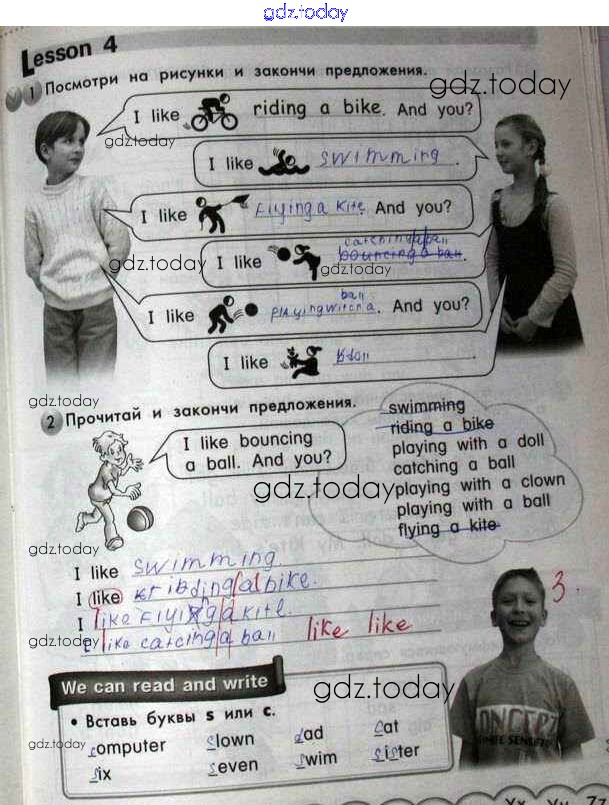 gdz.today
Lesson 4
1 Посмотри на рисунки и закончи предложения.
gdz.today
I like riding a bike. And you?
gdz.today
I like swimming.
I like Flying a kite And you?
catching a ball
I like bouncing a ball.
gdz.today
gdz.today
ball
I like playing with a. And you?
I like
gdz.today
2 Прочитай и закончи предложения.
I like bouncing
a ball. And you?
swimming
riding a bike
playing with a doll
catching a ball
playing with a clown
playing with a ball
flying a kite
gdz.today
gdz.today
I like swimming.
I like ribding a bike.
I like Flying a kite.
I like catcing a ball like like
3.
gdz.today
We can read and write
gdz.today
• Вставь буквы s или c.
computer slown dad cat
gdz.today
six seven swim sister
CONCEPT
Xx Yy Zz